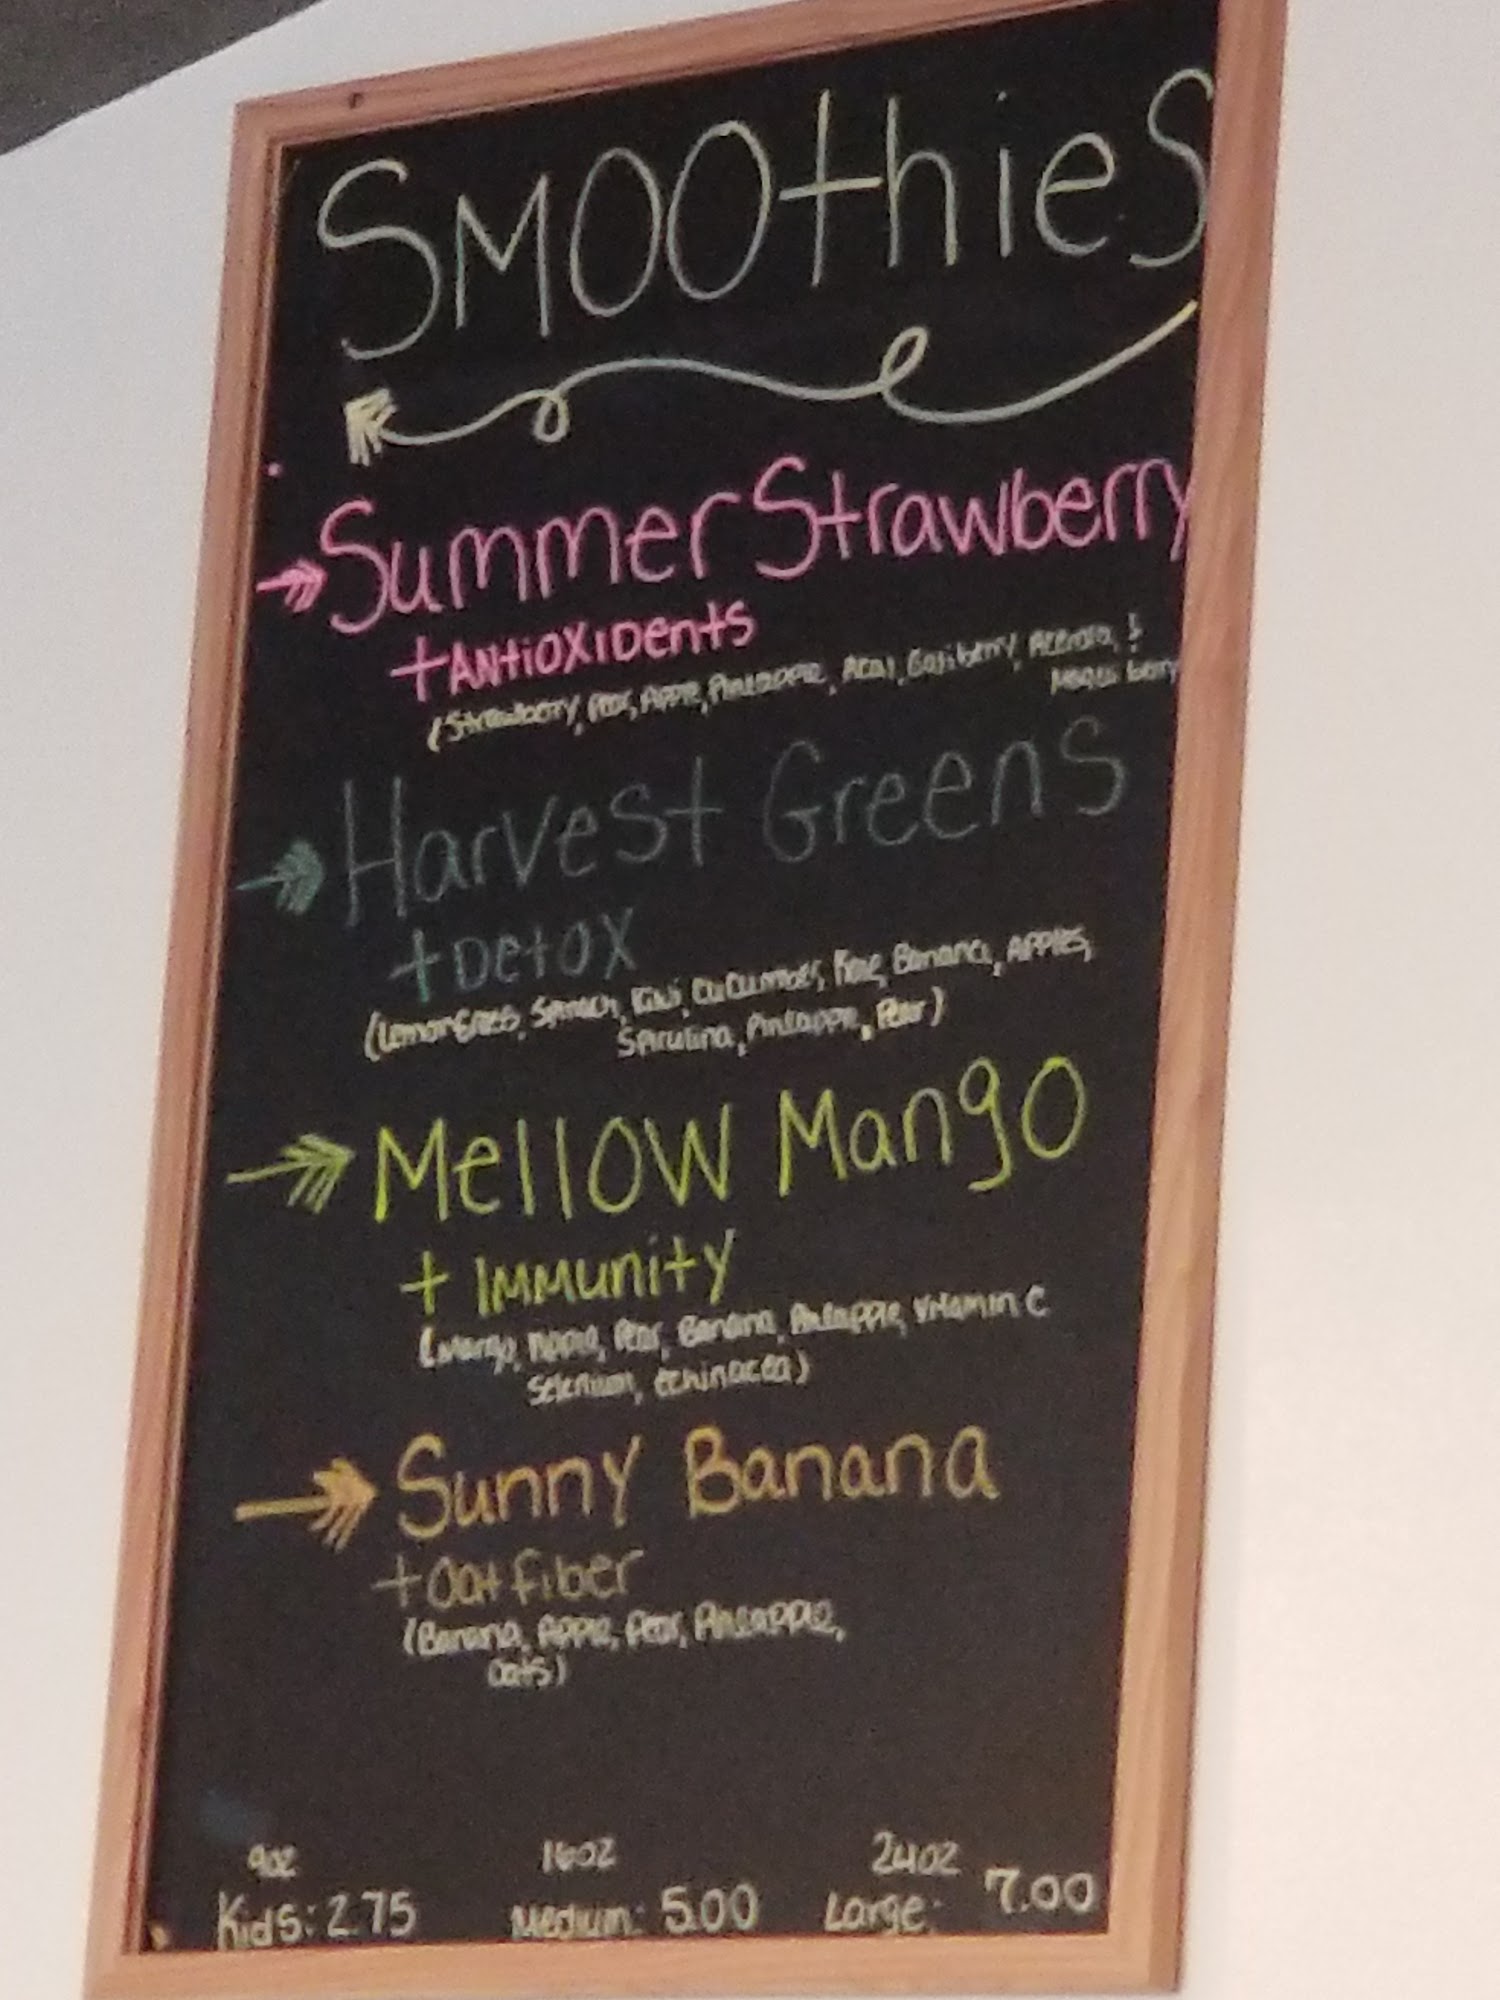 Smoothies
Summer Strawberry
+ Antioxidents
(Strawberry, Pear, Apple, Pineapple, Acai, Gojiberry, Acerola, &
Maqui berry
Harvest Greens
+ Detox
(Lemongrass, Spinach, Kiwi, Cucumber, Kale, Banana, Apples,
Spirulina, Pineapple, Pear)
Mellow Mango
+ Immunity
(Mango, Apple, Pear, Banana, Pineapple, Vitamin C
Selenium, Echinacea)
Sunny Banana
+ Oat fiber
(Banana, Apple, Pear, Pineapple,
Oats)
9oz 16oz 24oz
Kids: 2.75 Medium: 5.00 Large: 7.00